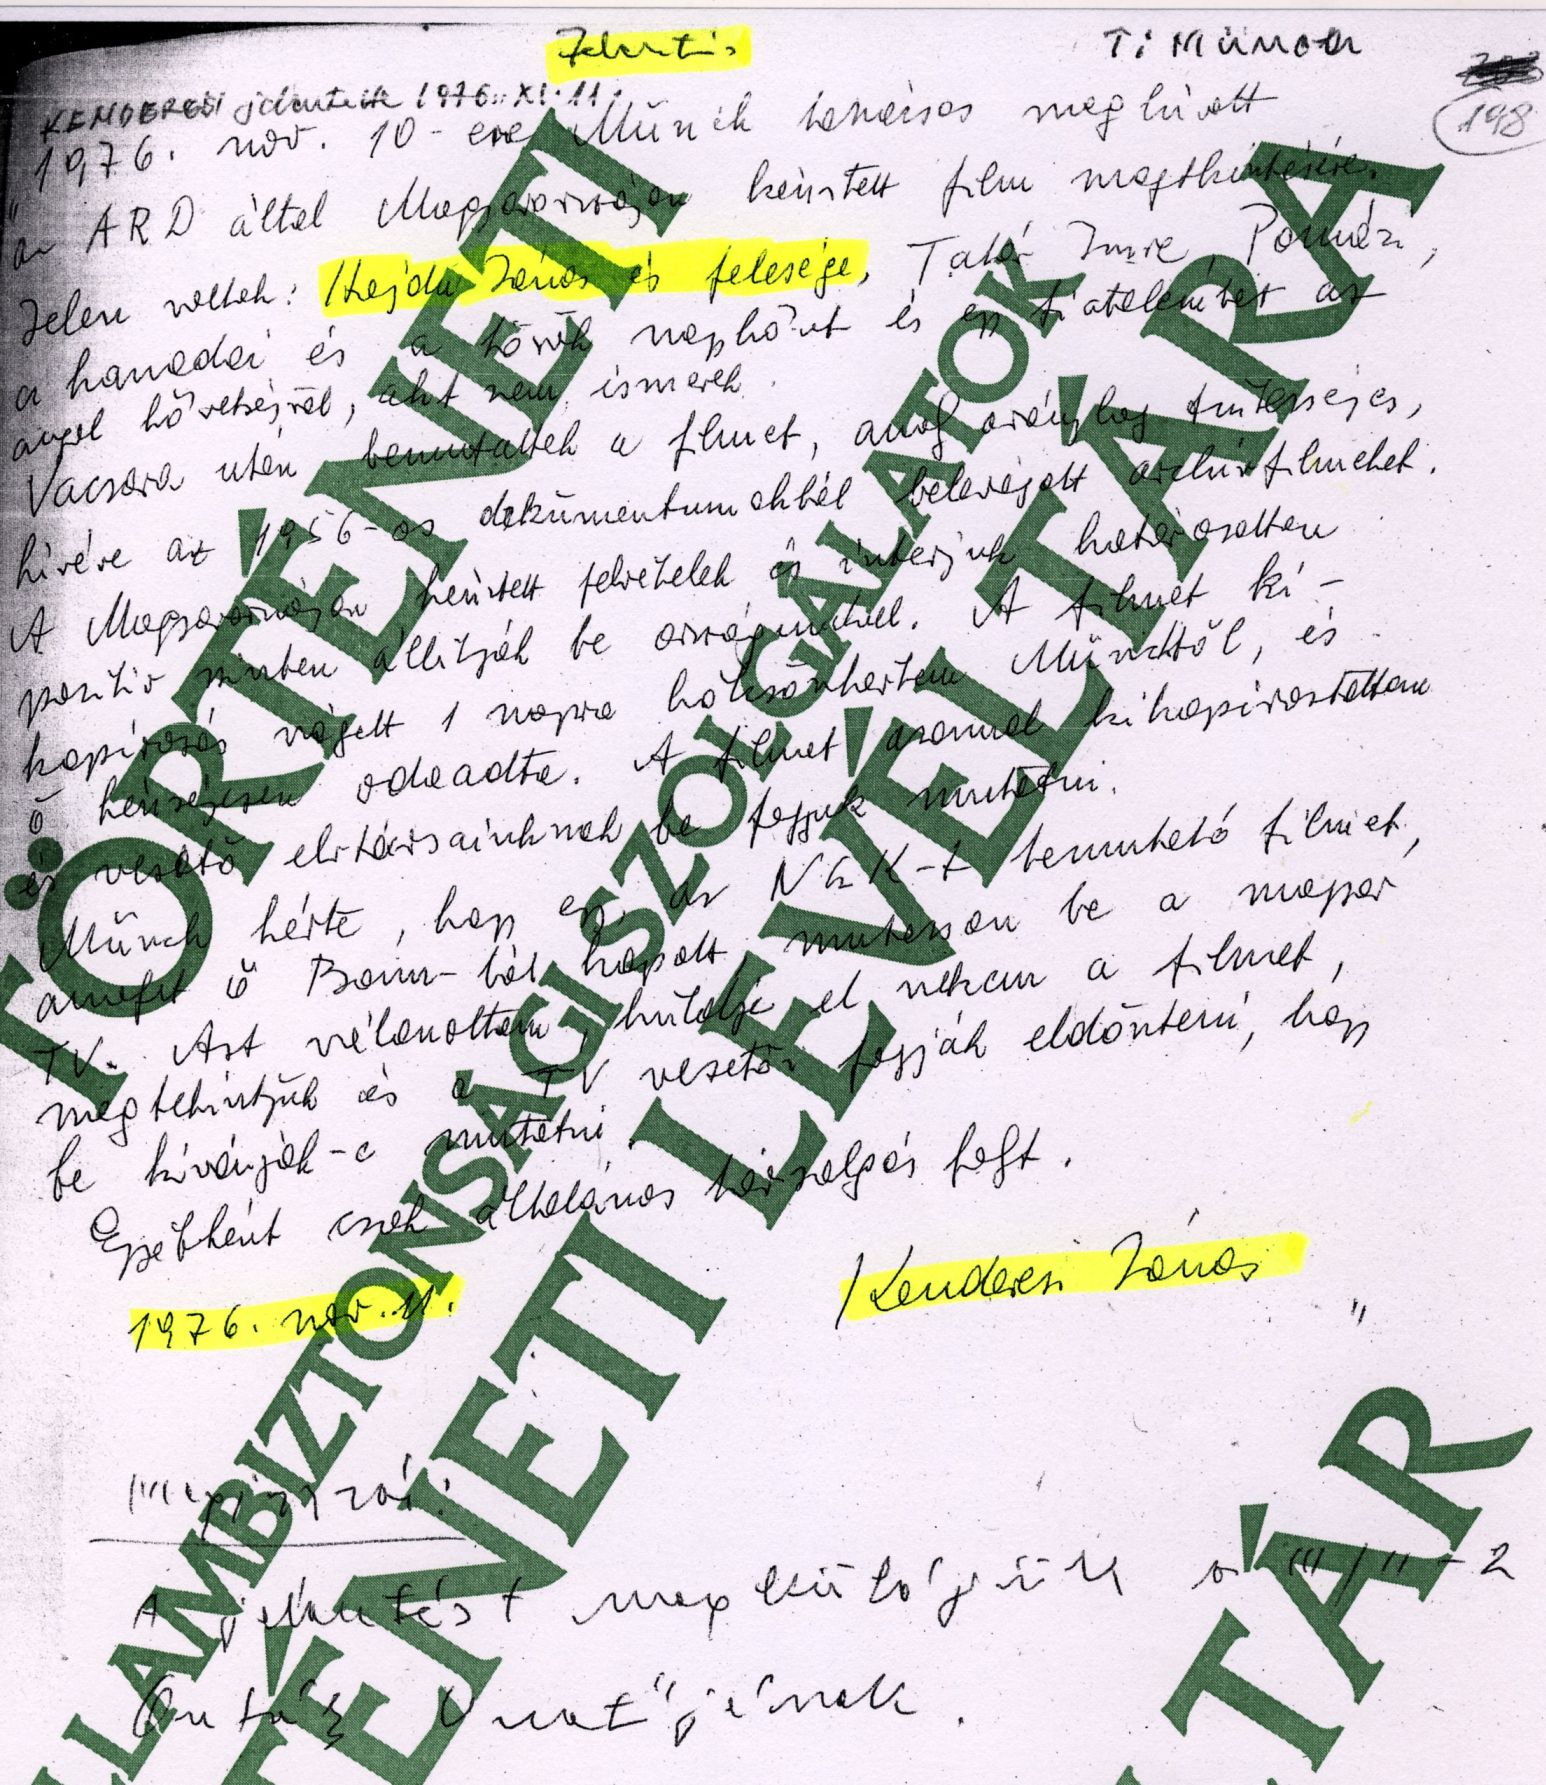 Jelentés
T: Münch
198
KENDERESI jelentette 1976. XI. 11.
1976. nov. 10-én Münch tanácsos meghívott
az ARD által Magyarországon készített film megtekintésére.
Jelen voltak: Hajdú János és felesége, Tatár Imre, Pomázi,
a kanadai és a török nagykövet és egy fiatalember az
angol követségről, akit nem ismerek.
Vacsora után bemutatták a filmet, amely aránylag
kivéve az 1956-os dokumentumokból belevágott archívfilmeket.
A Magyarországon készített felvételek és interjuk határozottan
pozitiv szinben állitják be országunkat. A filmet ki-
kapirozás végett 1 napra kölcsönkértem Münchtől, és
ő készségesen odaadta. A filmet azonnal kikapiroztattam
és vezető elvtársainknak be fogjuk mutatni.
Münch kérte, hogy egy, az NSZK-t bemutató filmet,
amelyet ő Bonn-ból kapott, mutasson be a magyar
TV. Azt válaszoltam, küldje el nekem a filmet,
megtekintjük és a TV vezetői fogják eldönteni, hogy
be kivánják-e mutatni.
Egyébként csak általános társalgás folyt.
1976. nov. 11.
Kenderesi János
"
A jelentést megküldjük a III/II-2
Osztály Vezetőjének.
TÖRTÉNETI LEVÉLTÁRA
ÁLLAMBIZTONSÁGI SZOLGÁLATOK
TÖRTÉNETI LEVÉLTÁRA
TÁR